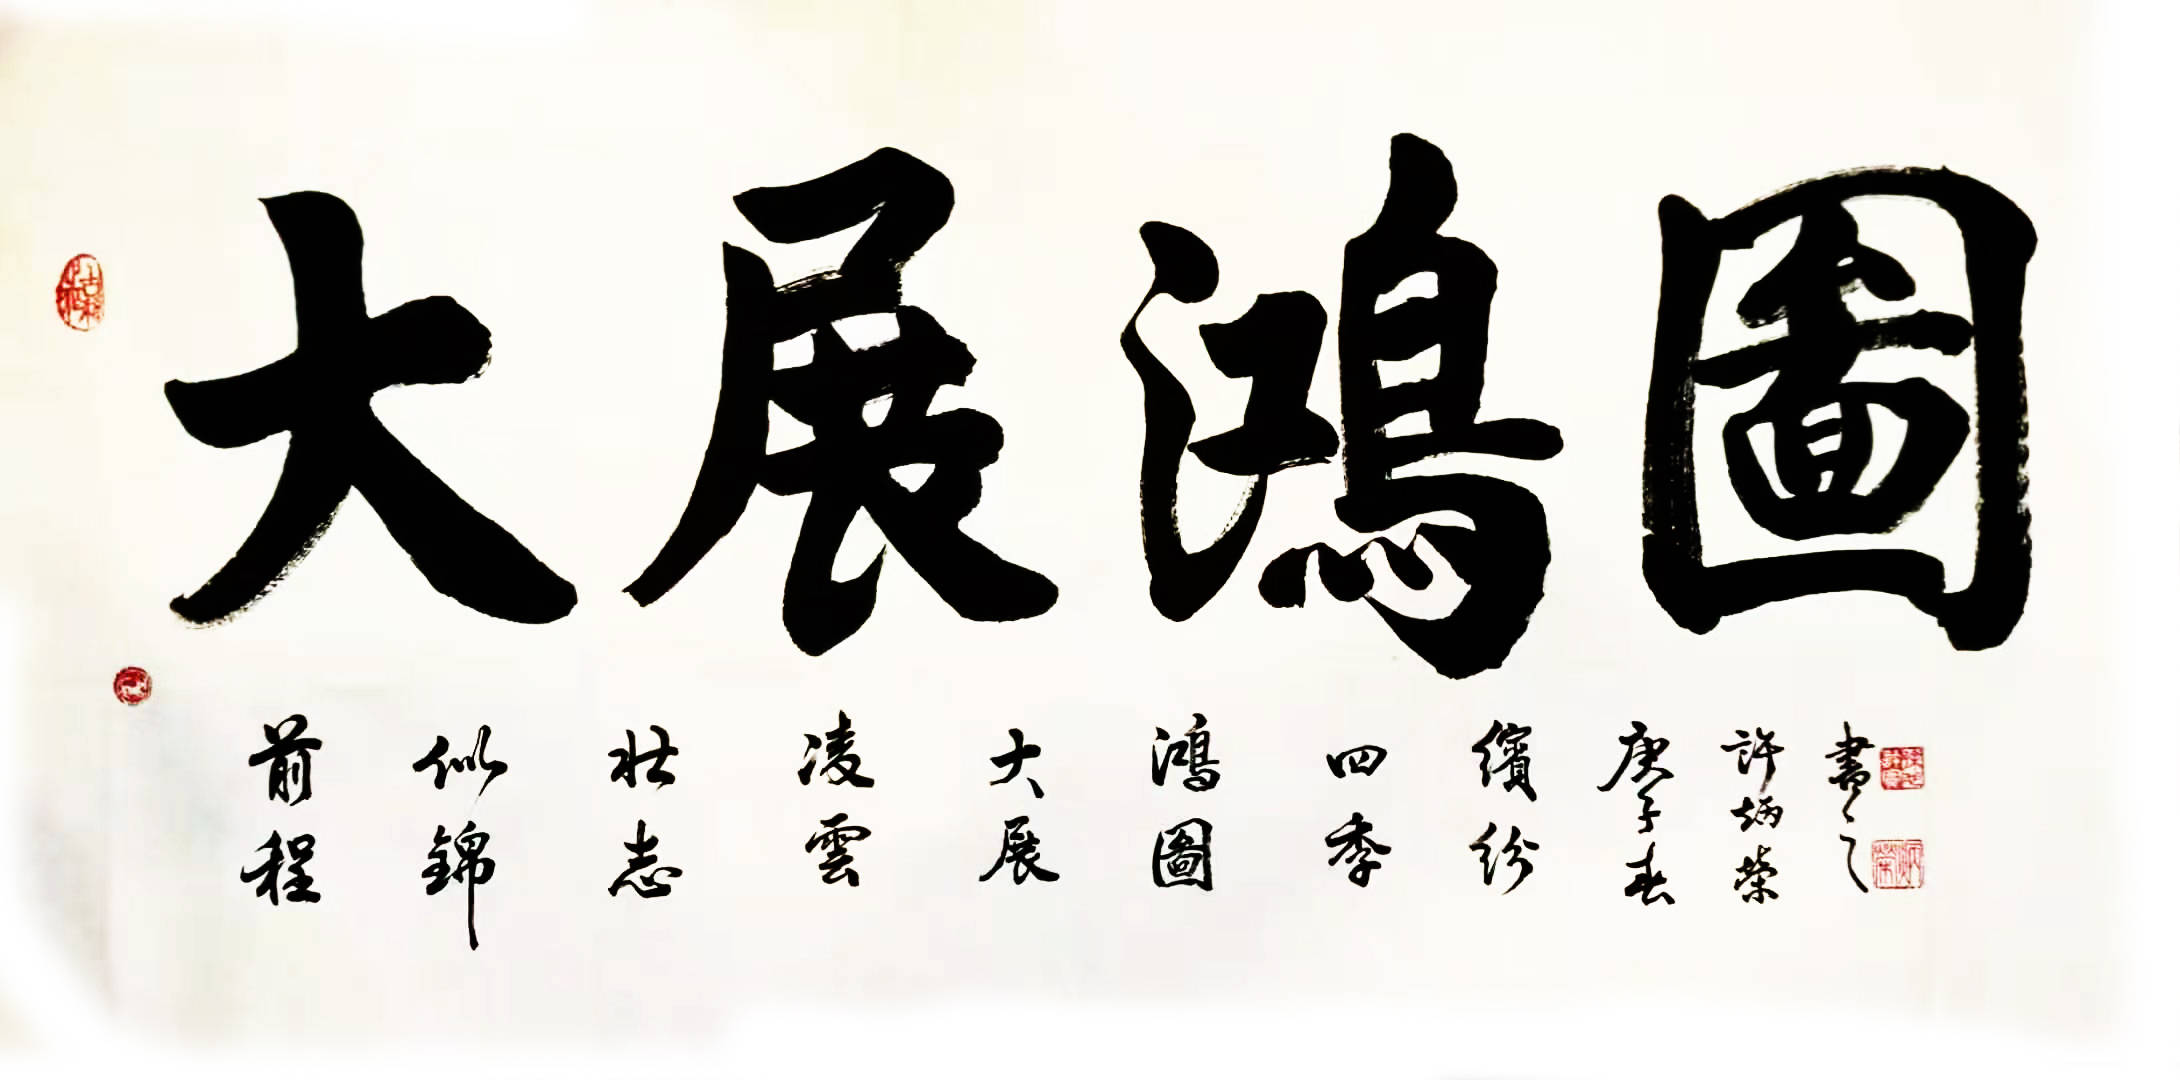 大展鴻圖
前程
似錦
壯志
凌雲
大展
鴻圖
四季
繽紛
庚子春
許炳榮
書之
炳榮